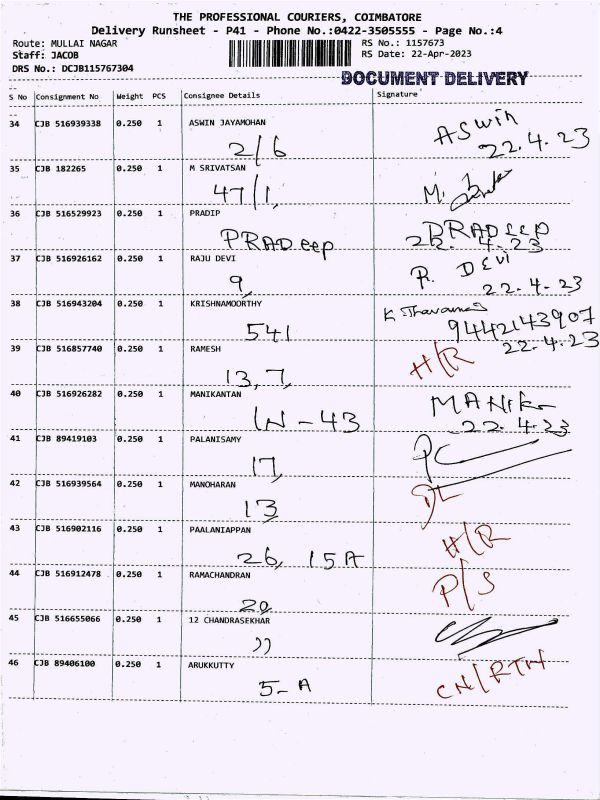 THE PROFESSIONAL COURIERS, COIMBATORE
Delivery Runsheet - P41 - Phone No.:0422-3505555 - Page No.:4
Route: MULLAI NAGAR RS No.: 1157673
Staff: JACOB RS Date: 22-Apr-2023
DRS No.: DCJB115767304
DOCUMENT DELIVERY
S No Consignment No Weight PCS Consignee Details Signature
34 CJB 516939338 0.250 1 ASWIN JAYAMOHAN
2/6 ASwin
22.4.23
35 CJB 182265 0.250 1 M SRIVATSAN
47/1, M.
36 CJB 516529923 0.250 1 PRADIP
PRADeep PRADeep
22.4.23
37 CJB 516926162 0.250 1 RAJU DEVI
9, R. DEVI
22.4.23
38 CJB 516943204 0.250 1 KRISHNAMOORTHY
541 K
9442143907
22.4.23
39 CJB 516857740 0.250 1 RAMESH
13,7, H/R
40 CJB 516926282 0.250 1 MANIKANTAN
IN-43 MANik
22.4.23
41 CJB 89419103 0.250 1 PALANISAMY
17,
42 CJB 516939564 0.250 1 MANOHARAN
13 DL
43 CJB 516902116 0.250 1 PAALANIAPPAN
26, 15A H/R
44 CJB 516912478 0.250 1 RAMACHANDRAN
20, P/S
45 CJB 516655066 0.250 1 12 CHANDRASEKHAR
))
46 CJB 89406100 0.250 1 ARUKKUTTY
5-A CN/RTN